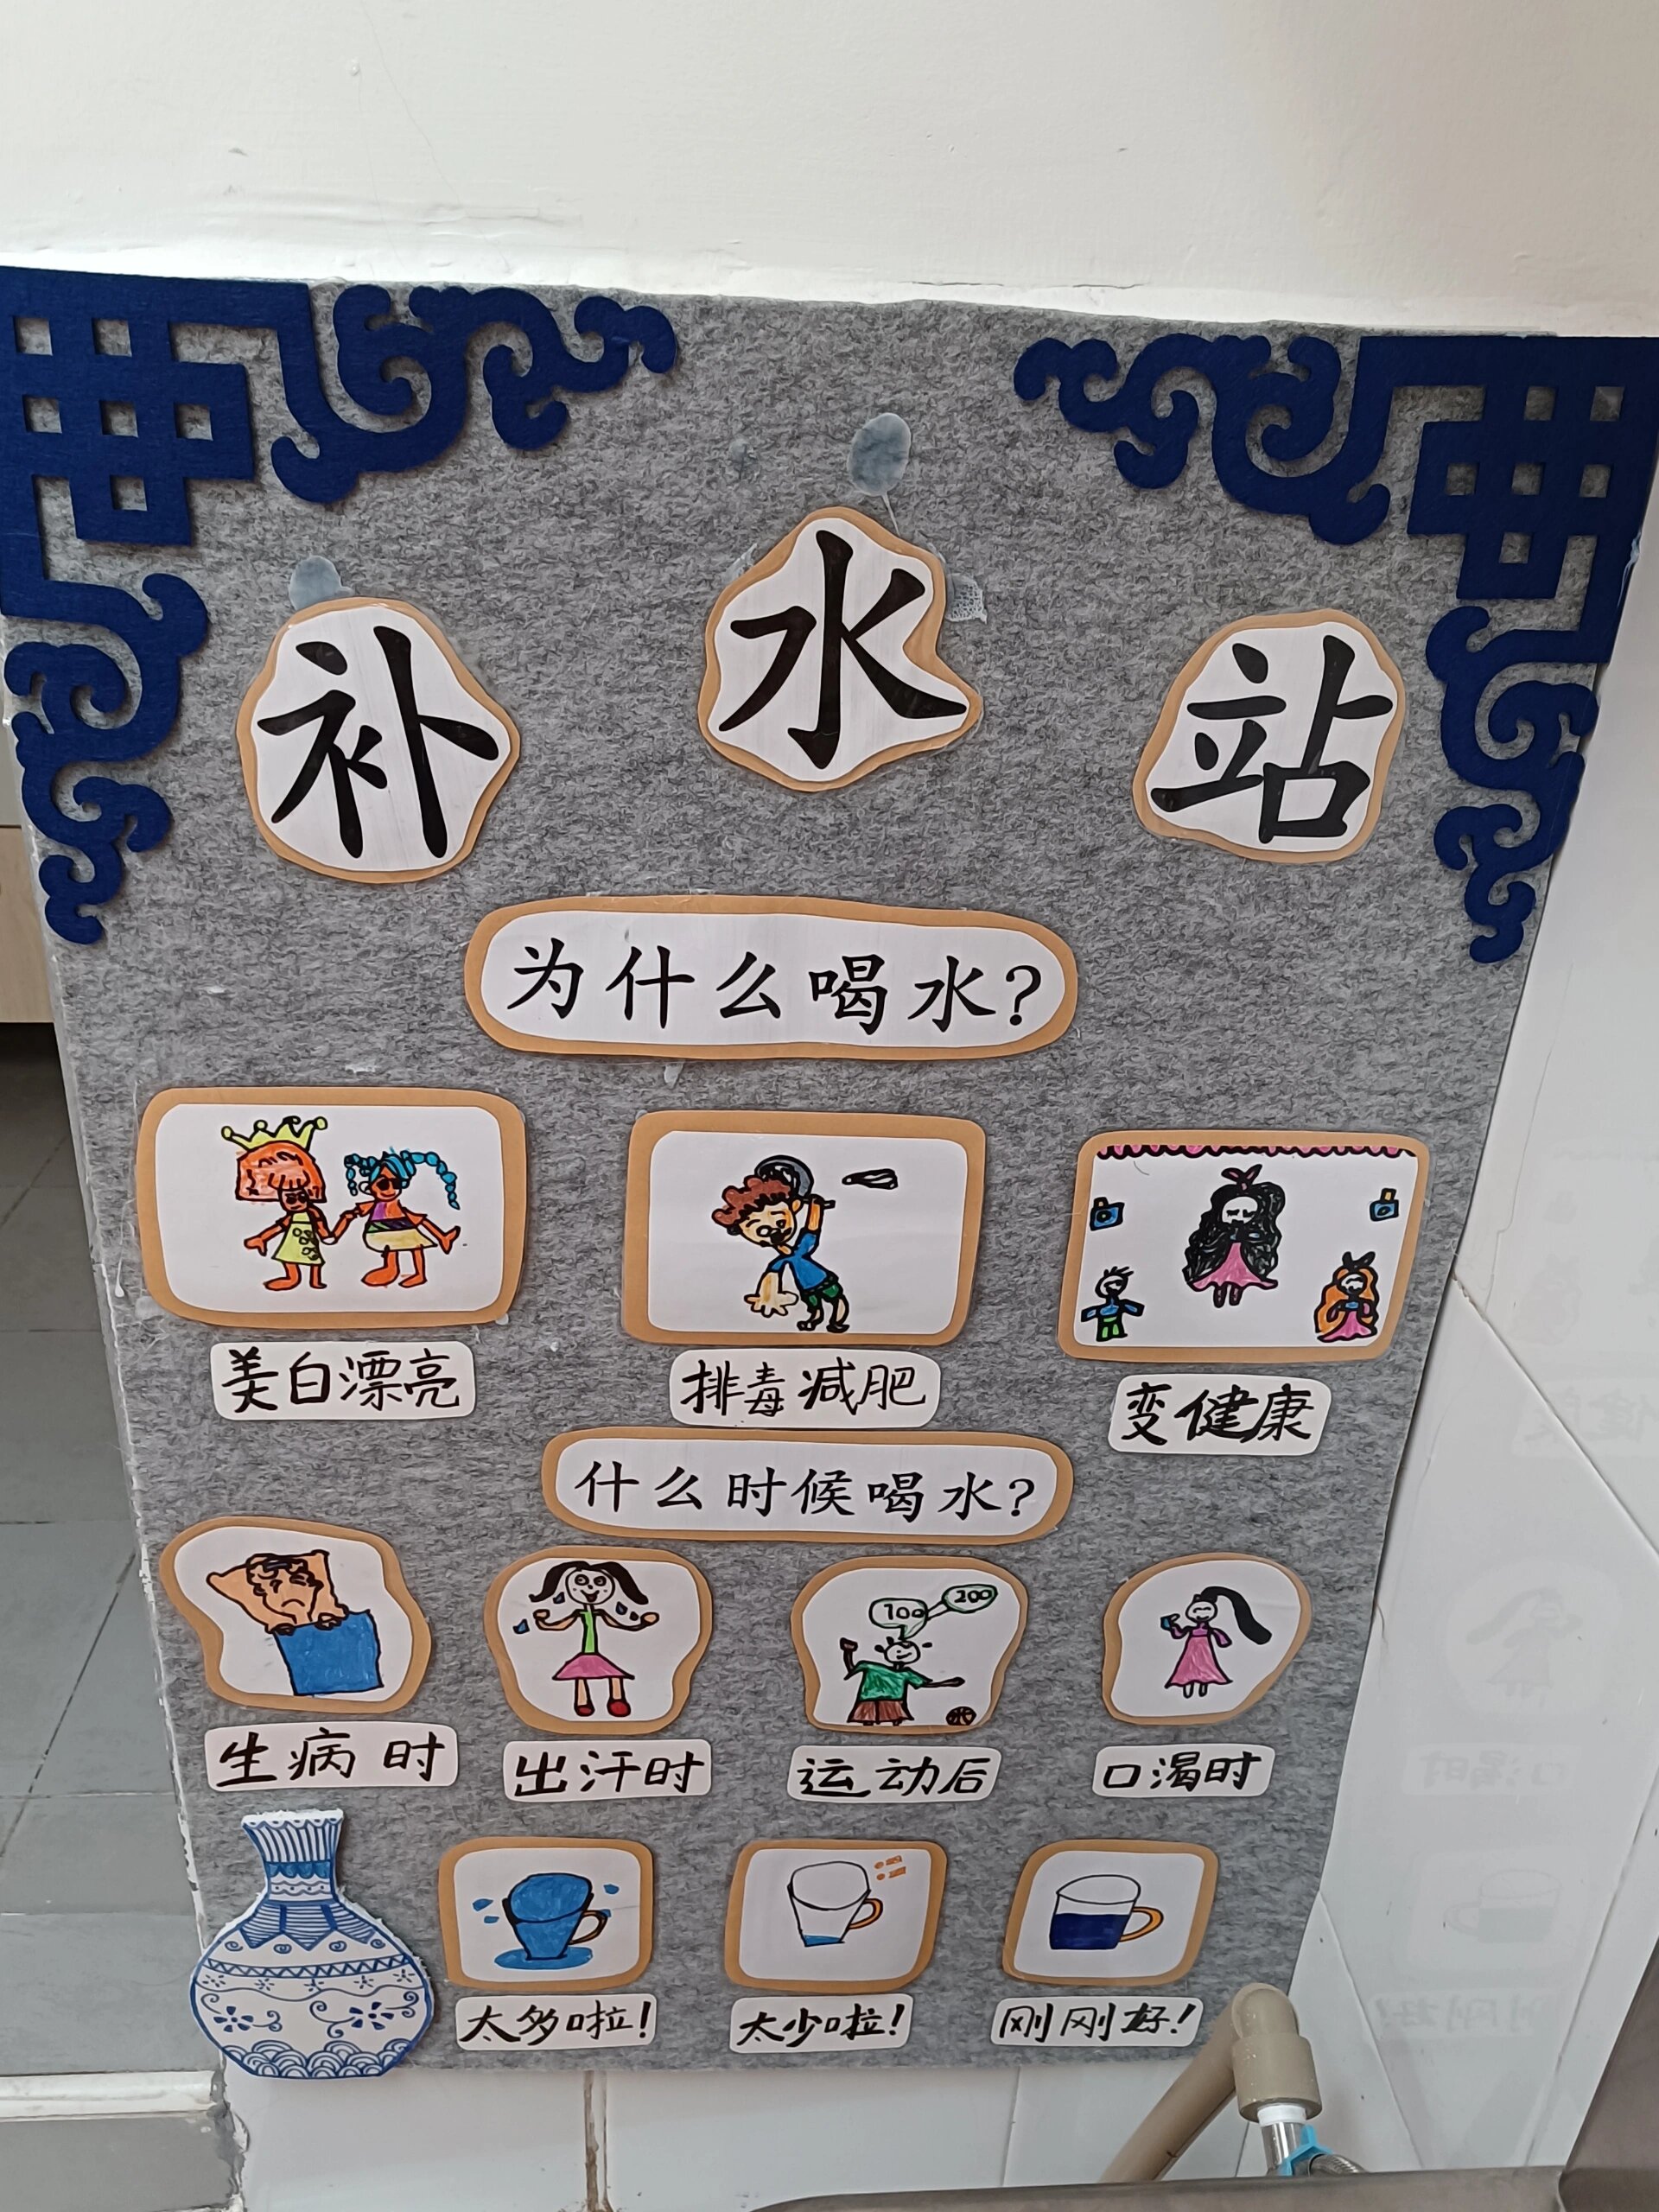 补水站
为什么喝水?
美白漂亮 排毒减肥 变健康
什么时候喝水?
100 200
生病时 出汗时 运动后 口渴时
太多啦! 太少啦! 刚刚好!